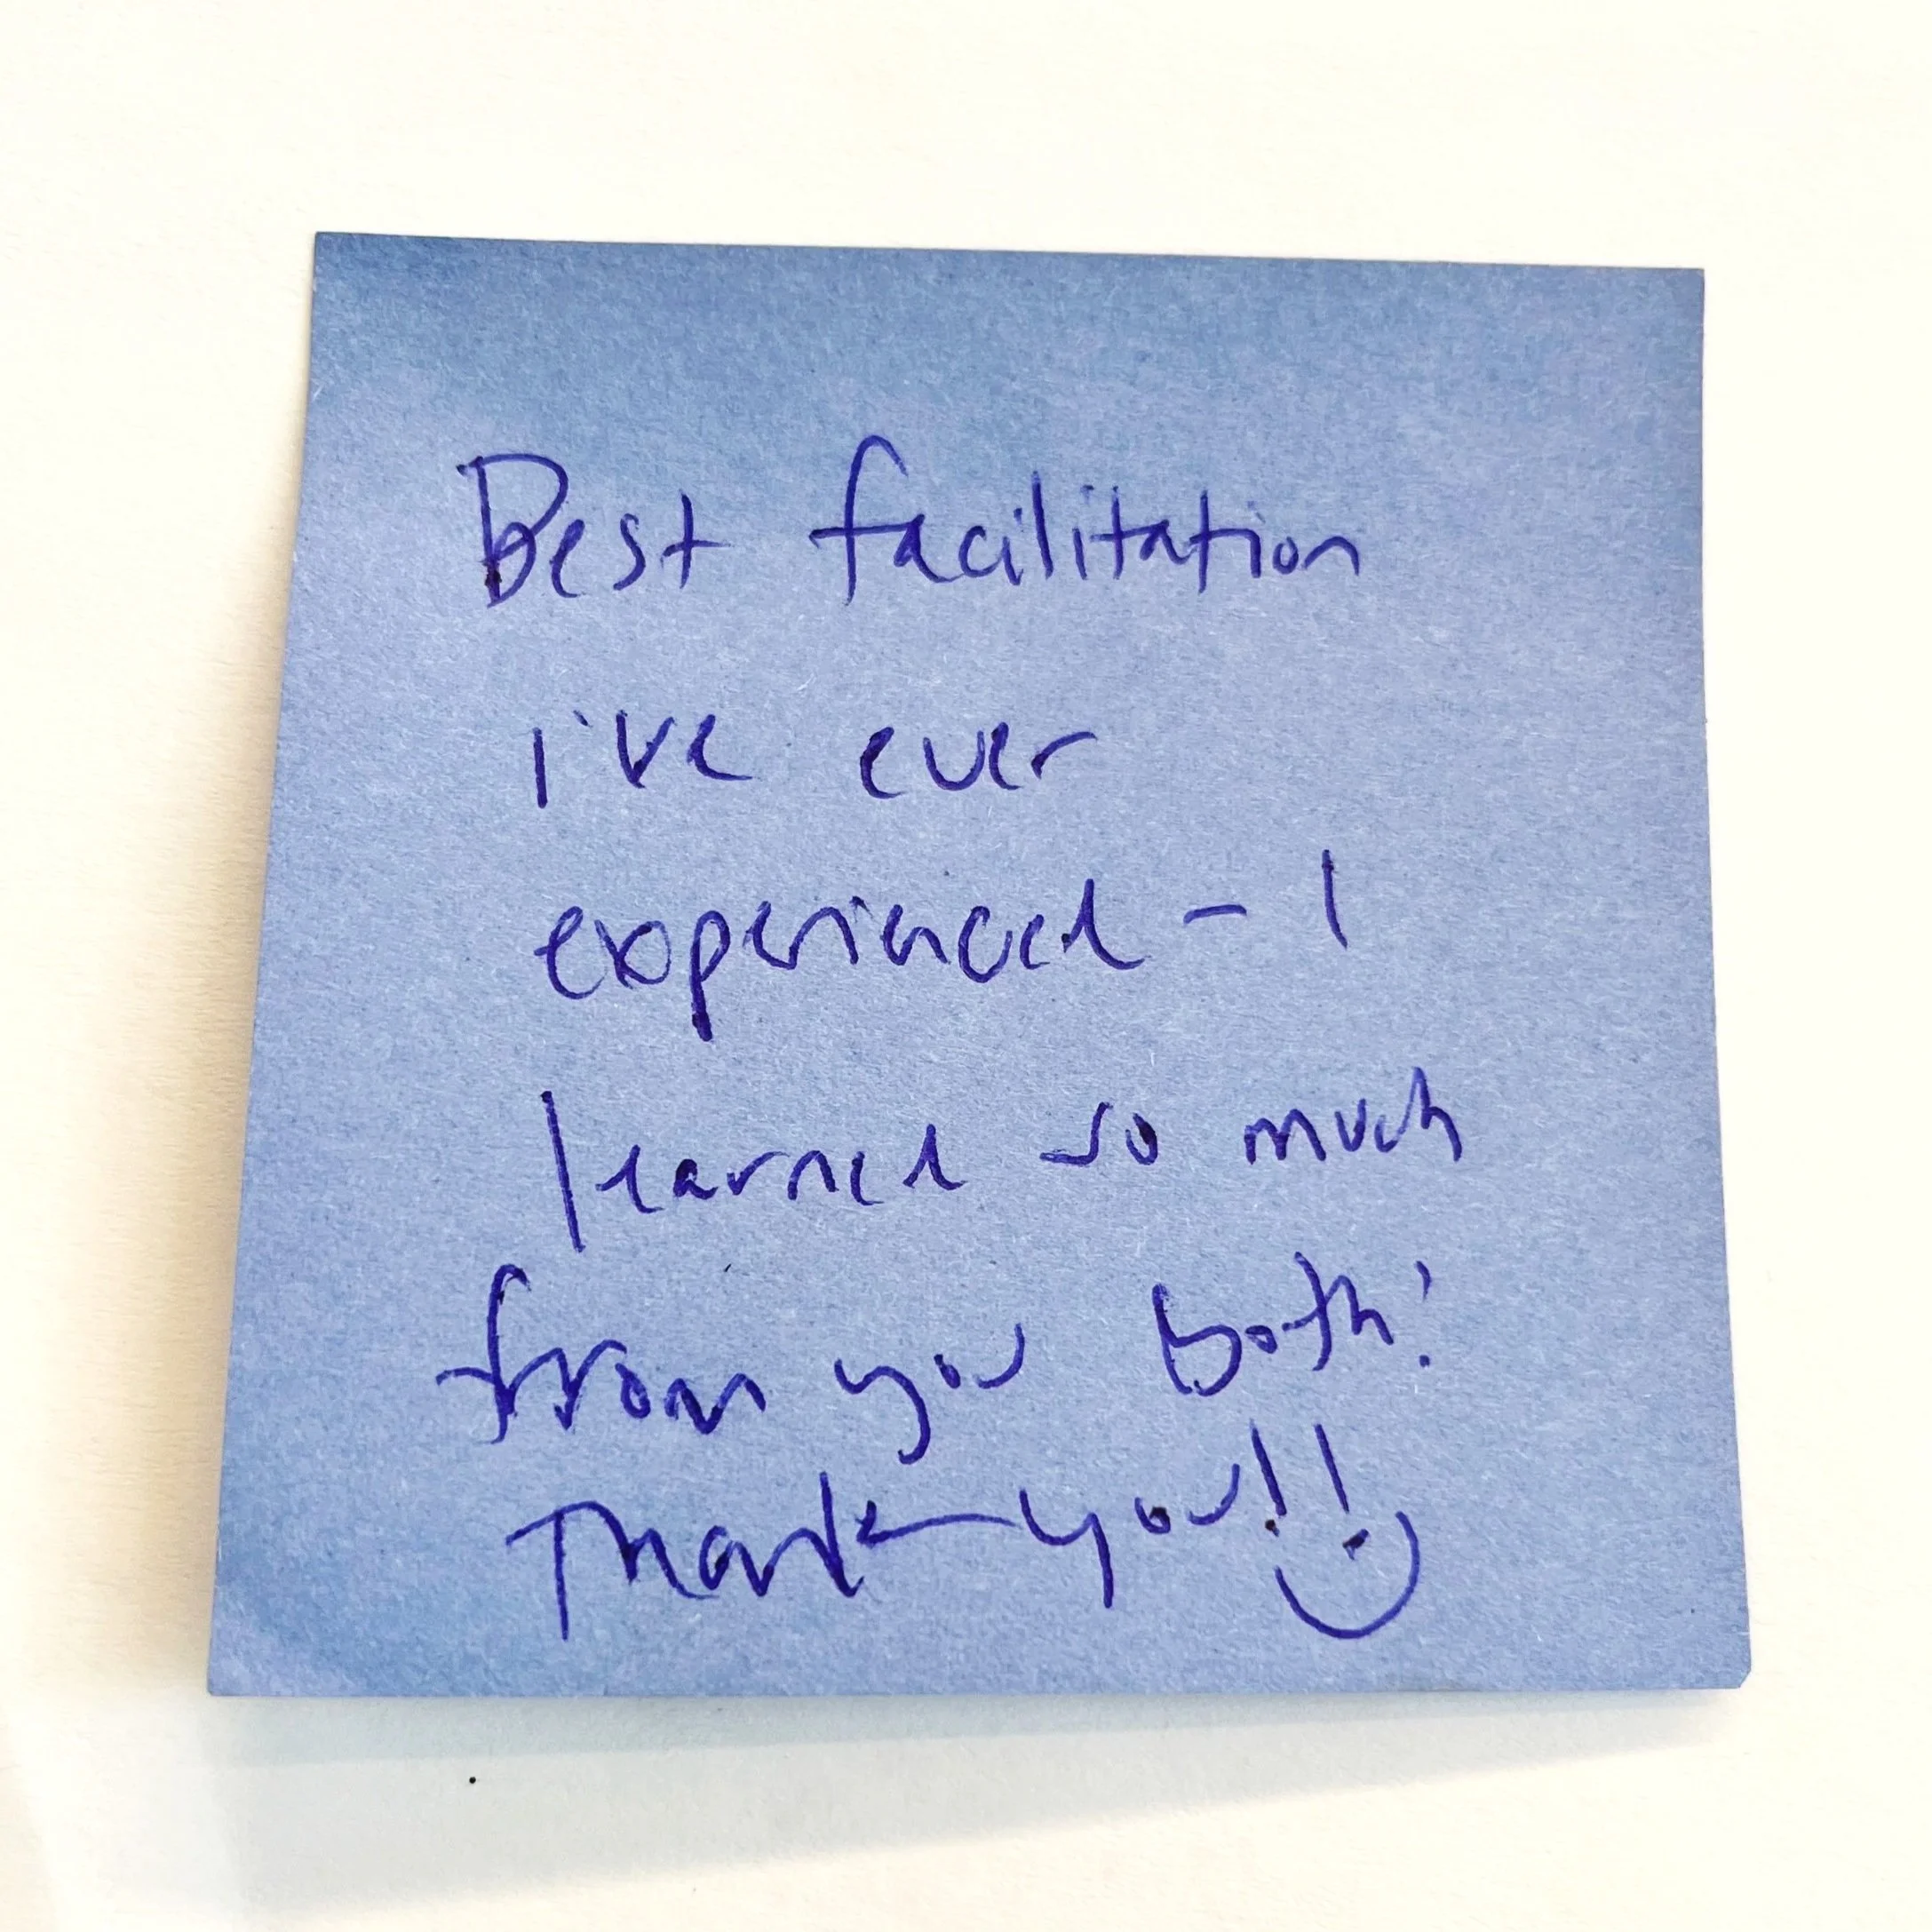 Best facilitation
i've ever
experienced - I
learned so much
from you both!
Thank you!! :)